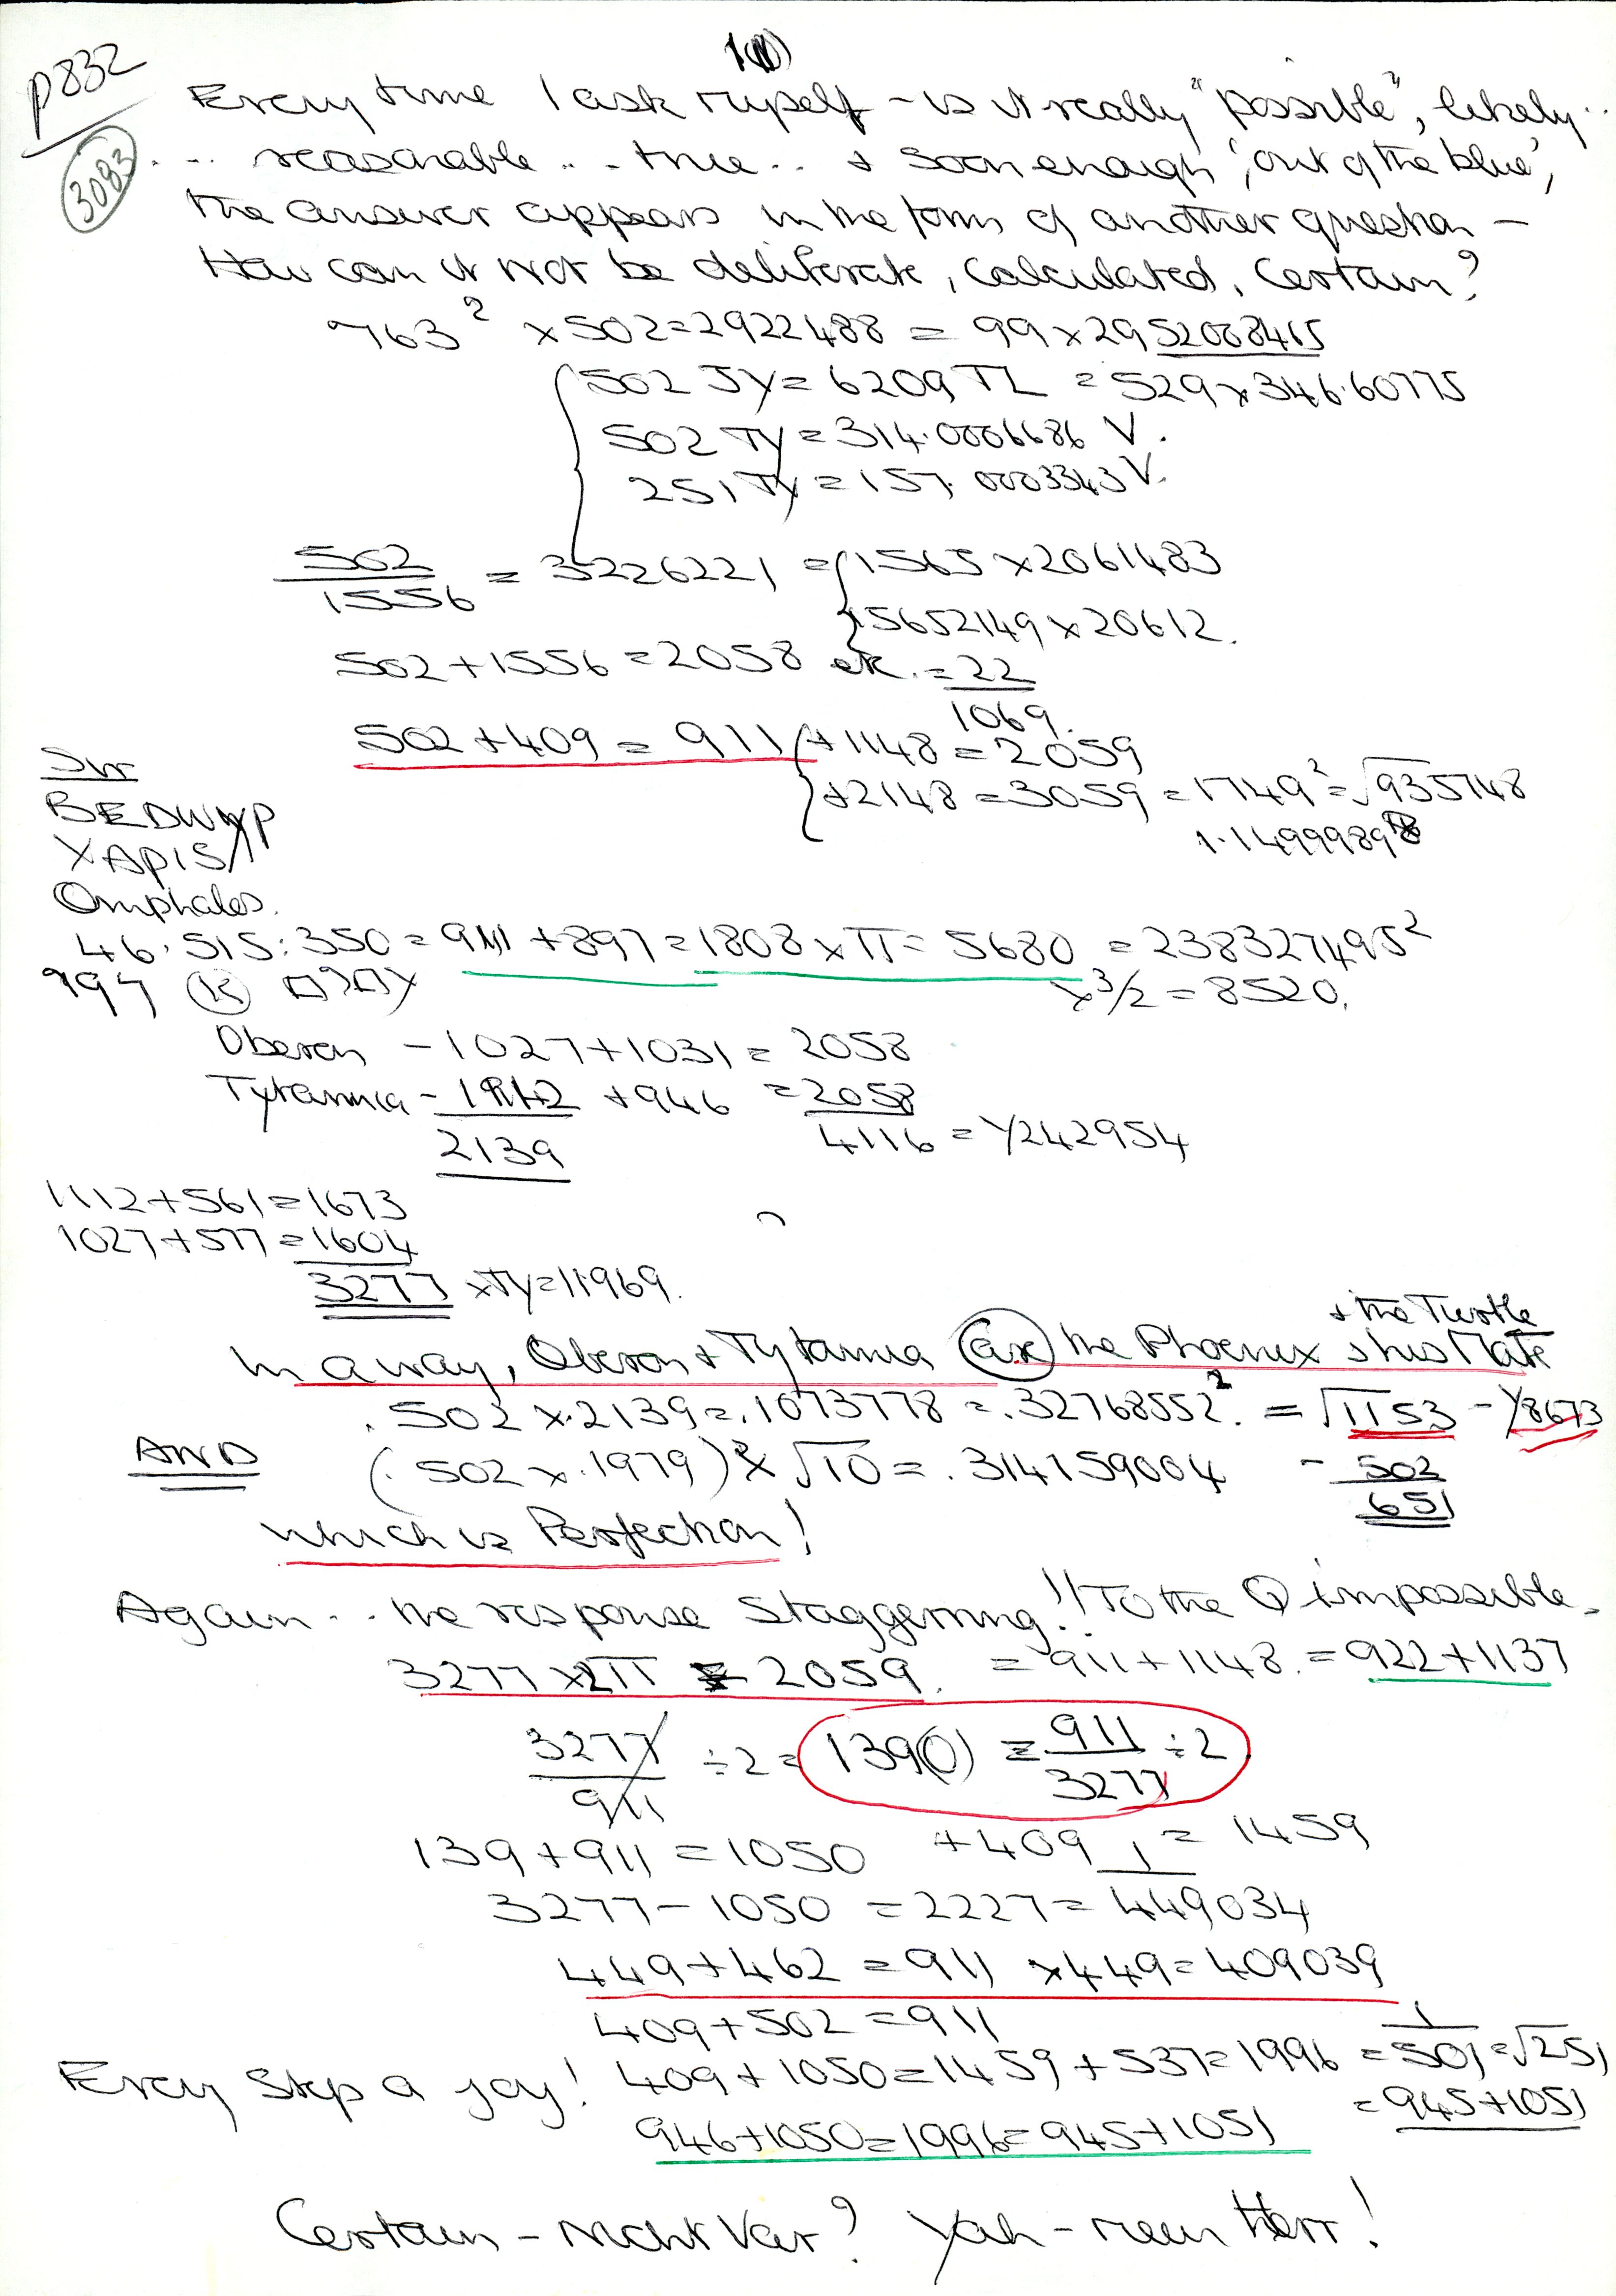 p832
3083
Every time I ask myself - is it really "possible", likely..
... reasonable ... true .. + soon enough, 'out of the blue',
the answer appears in the form of another question -
How can it not be deliberate, calculated, certain?
763² × 502 = 2922488 = 99 × 2952008465
502 JY = 6209 TL = 529 × 346.60775
502 TY = 314.0006686 V.
251 TY = 157.0003343 V.
502/1556 = 3226221 = 1565 × 2061483
15652149 × 20612.
502 + 1556 = 2058 etc. = 22/1069.
502 + 409 = 911 + 1148 = 2059
+ 2148 = 3059 = 1749² = √935748
1.14999898
Sir
BEDWYR
XAPIS
Omphalos.
46.515:350 = 911 + 897 = 1808 × π = 5680 = 238327495²
797 × 3/2 = 8520.
Oberon - 1027 + 1031 = 2058
Tytannia - 1112 + 946 = 2058
2139 4116 = 1/242954
1112 + 561 = 1673
1027 + 577 = 1604
3277 × TY = 11.969.
+ the Turtle
In a way, Oberon + Tytannia are the Phoenix & his Mate
.502 × .2139 = .1073778 = .32768552². = √1153 - 1/8673
AND (.502 × .1979)² × √10 = .314159004 - 502
651
which is Perfection!
Again ... the response staggerring!! To the Q impossible.
3277 × 2π = 2059. = 911 + 1148. = 922 + 1137
3277/911 ÷ 2 = 139(0) = 911/3277 ÷ 2
139 + 911 = 1050 + 409 = 1459
3277 - 1050 = 2227 = 1/449034
449 + 462 = 911 × 449 = 409039
409 + 502 = 911
Every step a joy! 409 + 1050 = 1459 + 537 = 1996 = 1/501 = √251
946 + 1050 = 1996 = 945 + 1051 = 945 + 1051
Certain - nicht Var? Yah - mein Herr!